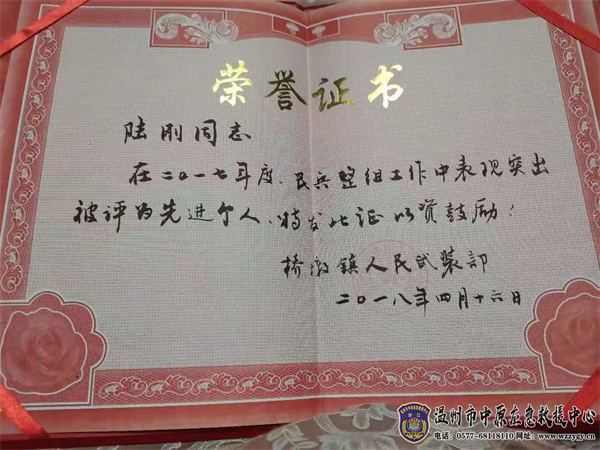 荣誉证书
陆刚同志
在二〇一七年度、民兵整组工作中表现突出
被评为先进个人、特发此证以资鼓励!
桥墩镇人民武装部
二〇一八年四月十六日
温州市中原应急救援中心
电话:0577-68118110 网址:www.wzzyjy.cn